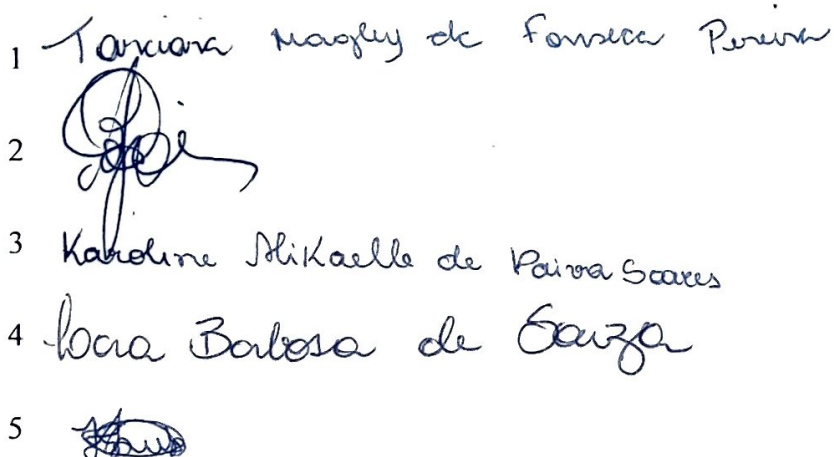 1 Tarciara Magley da Fonseca Pereira
2
3 Karoline Mikaelle de Paiva Soares
4 Barbosa de Souza
5